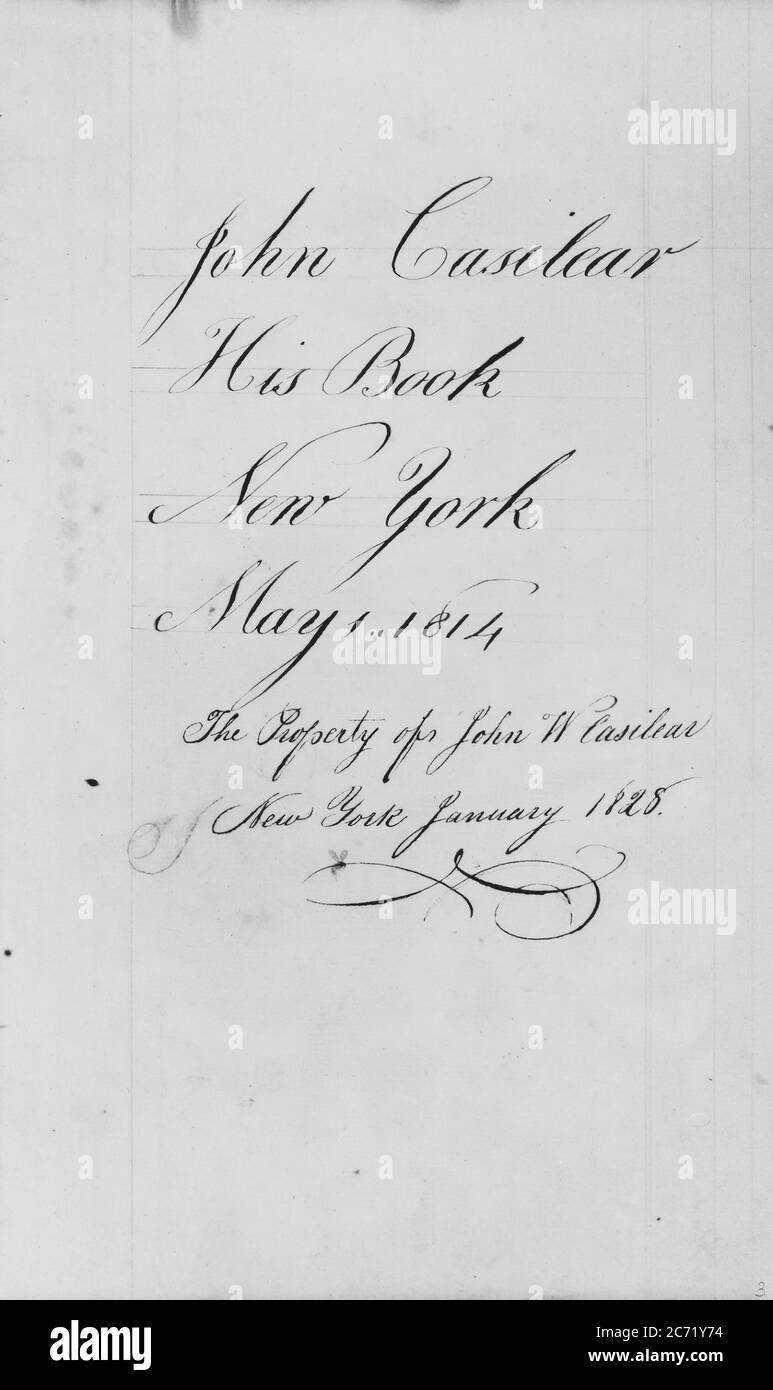 John Casilear
His Book
New York
May 1.. 1814
The Property of John W Casilear
New York January 1828.
3
alamy
Image ID: 2C71Y74
www.alamy.com